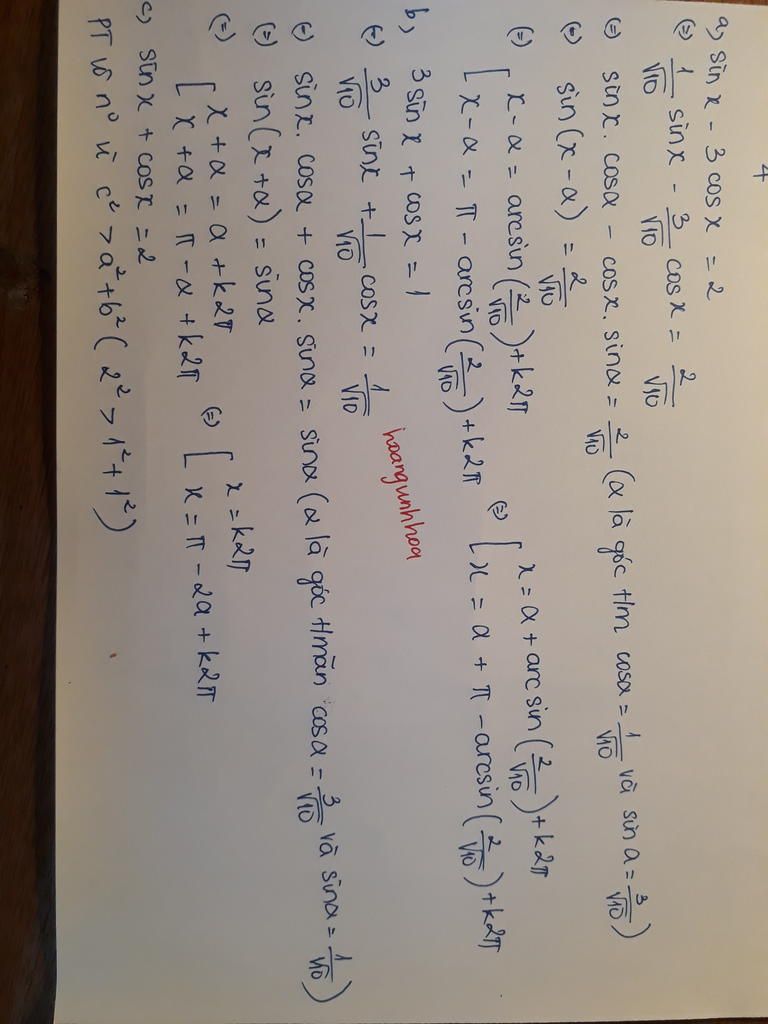 4
a, sin x - 3 cos x = 2
(=) 1/√10 sin x - 3/√10 cos x = 2/√10
(=) sin x . cos α - cos x . sin α = 2/√10 (α là góc t/m cos α = 1/√10 và sin α = 3/√10)
(=) sin(x - α) = 2/√10
(=) [ x - α = arcsin(2/√10) + k2π
x - α = π - arcsin(2/√10) + k2π (=) [ x = α + arcsin(2/√10) + k2π
x = α + π - arcsin(2/√10) + k2π
b, 3 sin x + cos x = 1
(=) 3/√10 sin x + 1/√10 cos x = 1/√10
hoangunhhoa
(=) sin x . cos α + cos x . sin α = sin α (α là góc t/mãn cos α = 3/√10 và sin α = 1/√10)
(=) sin(x + α) = sin α
(=) [ x + α = α + k2π
x + α = π - α + k2π (=) [ x = k2π
x = π - 2α + k2π
c, sin x + cos x = 2
PT vô n⁰ vì c² > a² + b² (2² > 1² + 1²)